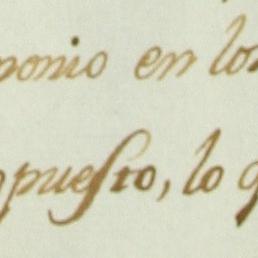 monio en los
puesto, lo q